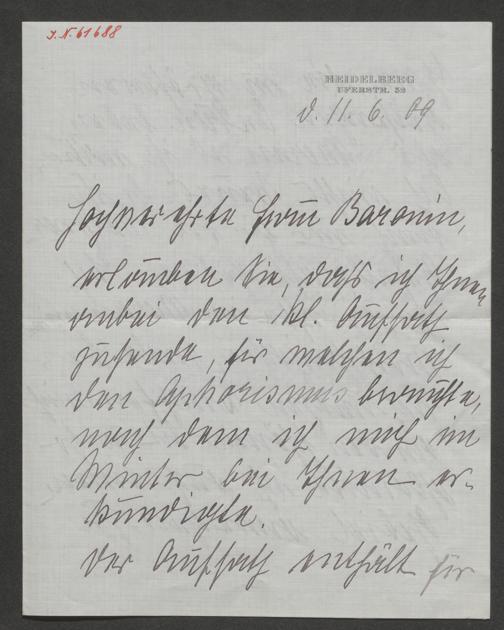 J.N. 61688
HEIDELBERG
UFERSTR. 52
d. 11. 6. 09
Hochverehrte Frau Baronin,
erlauben Sie, daß ich Ihnen
anbei den kl. Aufsatz
zusende, für welchen ich
den Aphorismus brauchte,
nach dem ich mich im
Winter bei Ihnen er-
kundigte.
Der Aufsatz enthält für